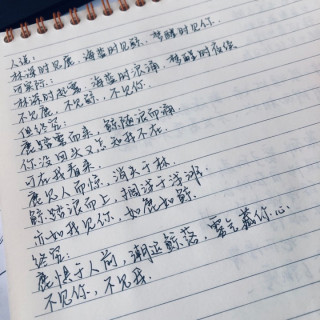 人说：
林深时见鹿，海蓝时见鲸，梦醒时见你．
可实际：
林深时起雾，海蓝时浪涌，梦醒时夜续
不见鹿，不见鲸，不见你．
但终究：
鹿踏雾而来，鲸随浪而涌
你没回头又怎知我不在．
可在我看来．
鹿见人而惊，消失于林．
鲸踏浪而上，搁浅于浮冰
亦如我见你，如鹿如鲸．
终究：
鹿惧于人前，潮退鲸落，雾气藏你心
不见你，不见我．